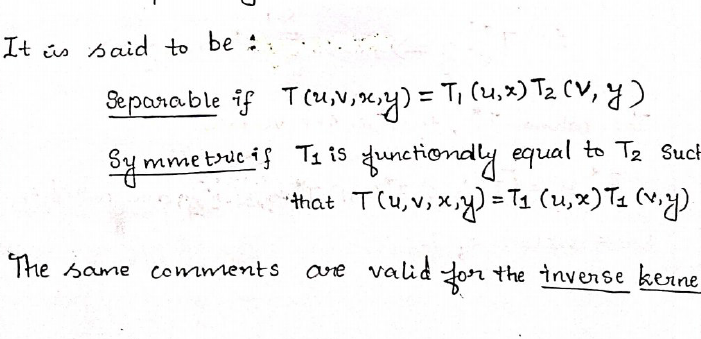 It is said to be :
Separable if T(u,v,x,y) = T₁(u,x) T₂(v, y)
Symmetric if T₁ is functionally equal to T₂ Such
that T(u, v, x,y) = T₁(u,x) T₁(v,y)
The same comments are valid for the inverse kerne